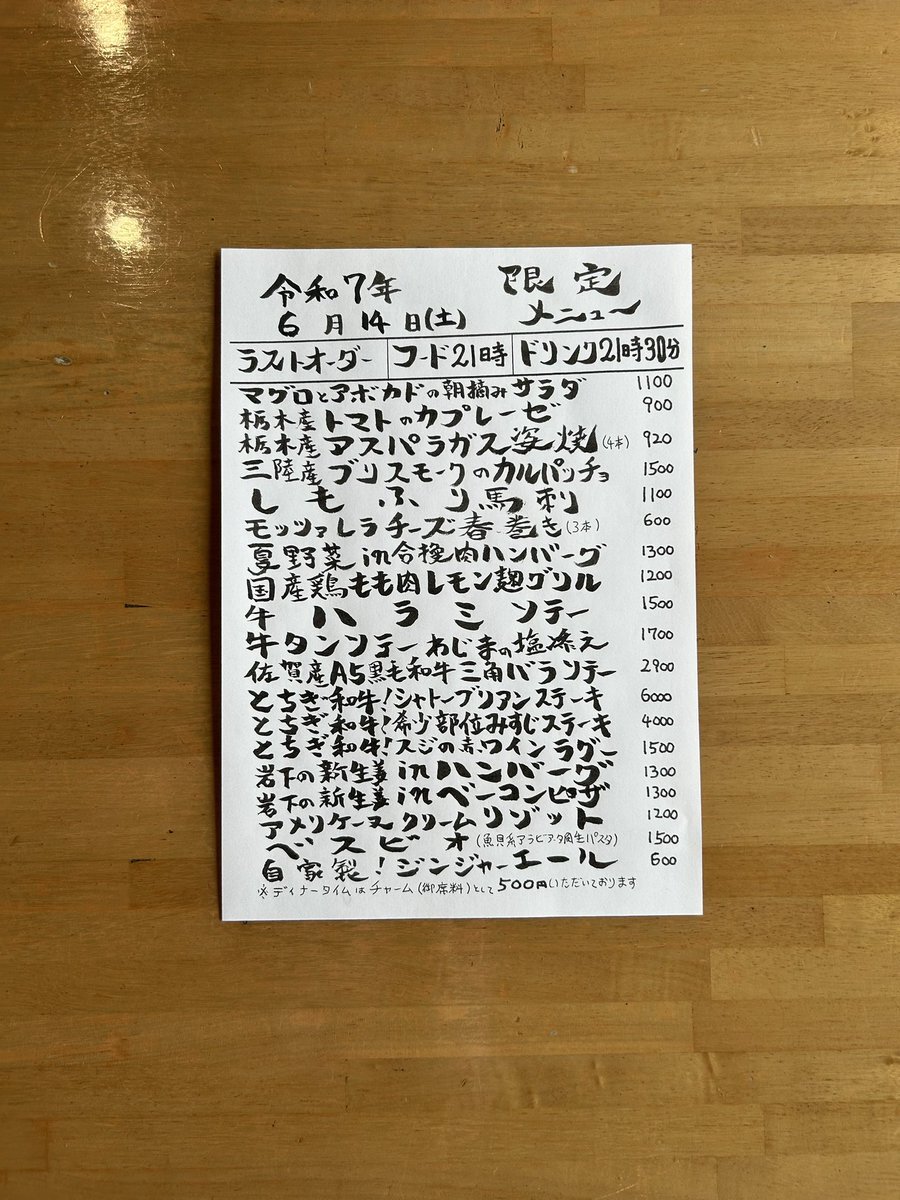 令和7年 限定
6月14日(土) メニュー
ラストオーダー フード21時 ドリンク21時30分
マグロとアボカドの朝摘みサラダ 1100
栃木産トマトのカプレーゼ 900
栃木産アスパラガス姿焼(4本) 920
三陸産ブリスモークのカルパッチョ 1500
しもふり馬刺 1100
モッツァレラチーズ春巻き(3本) 600
夏野菜in合挽肉ハンバーグ 1300
国産鶏もも肉レモン麹グリル 1200
牛ハラミソテー 1500
牛タンソテーわじまの塩添え 1700
佐賀産A5黒毛和牛三角バラソテー 2900
とちぎ和牛!シャトーブリアンステーキ 6000
とちぎ和牛!希少部位みすじステーキ 4000
とちぎ和牛!スジの赤ワインラグー 1500
岩下の新生姜inハンバーグ 1300
岩下の新生姜inベーコンピザ 1300
アメリケーヌクリームリゾット 1200
ベスビオ(魚貝系アラビアータ 生パスタ) 1500
自家製!ジンジャーエール 600
※ディナータイムはチャーム(御席料)として500円いただいております